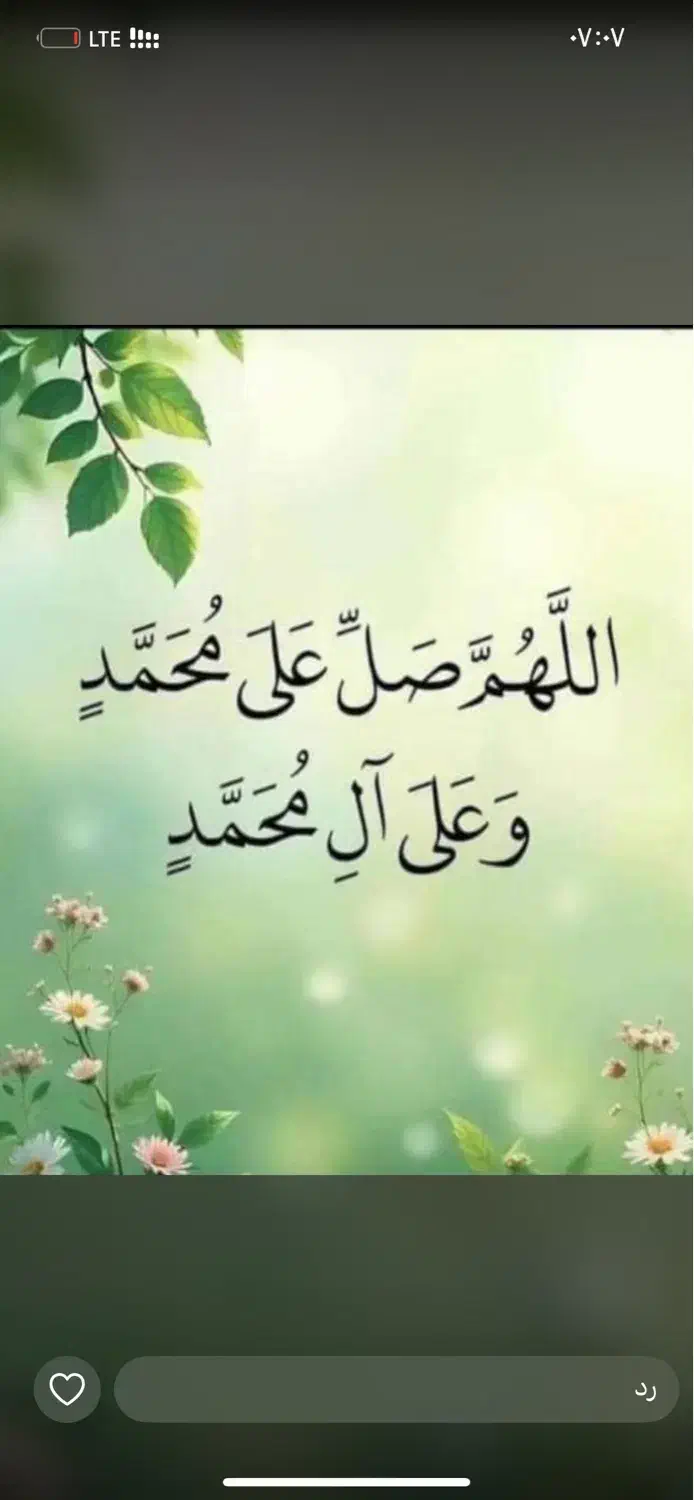 LTE
٠٧:٠٧
اللَّهُمَّ صَلِّ عَلَى مُحَمَّدٍ
وَعَلَى آلِ مُحَمَّدٍ
رد